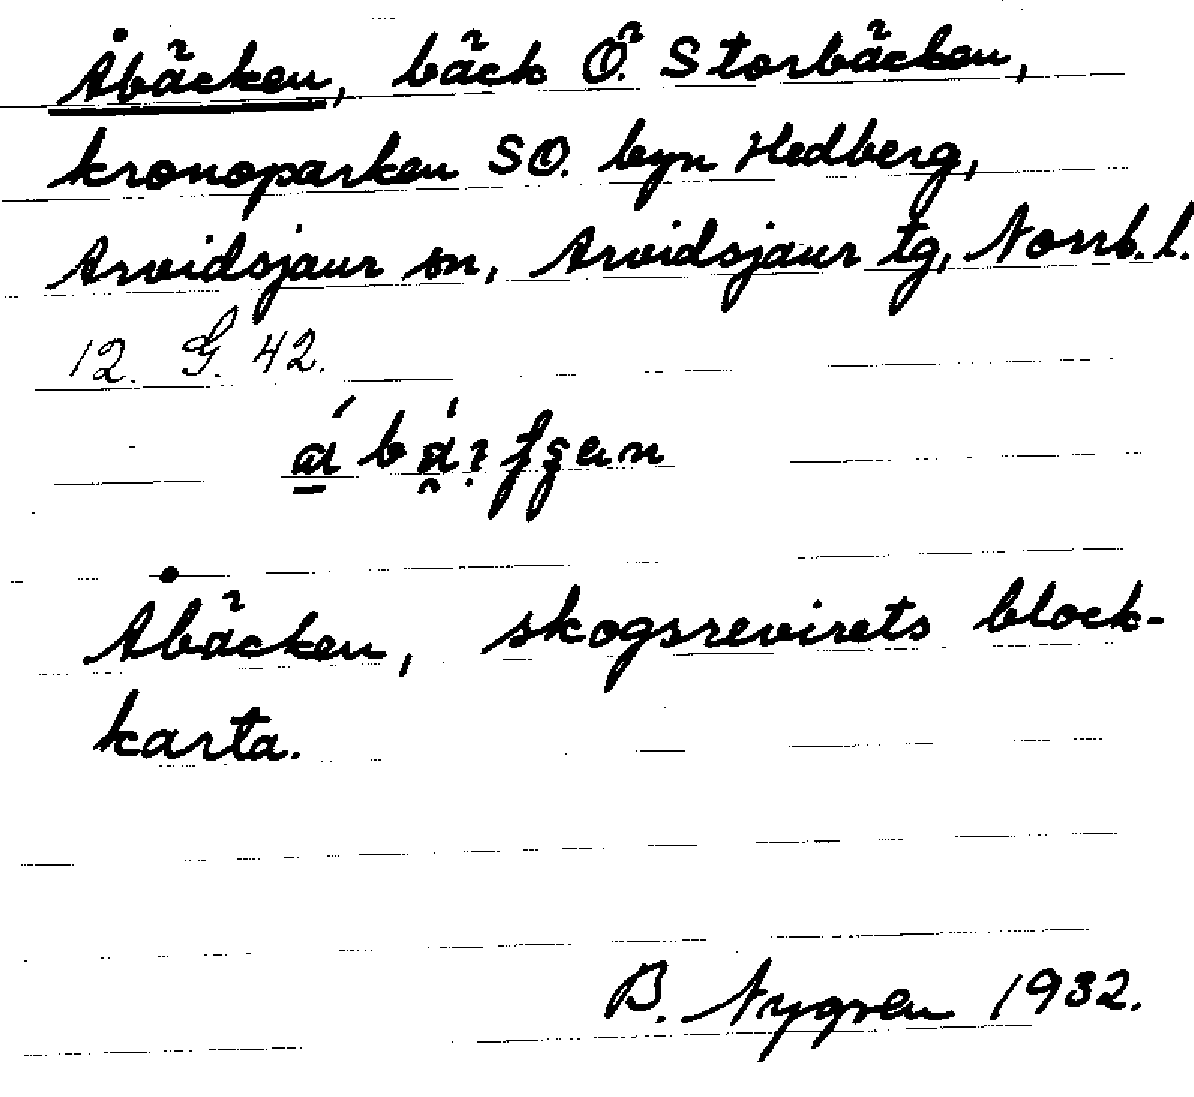 Åbäcken, bäck Ö. Storbäcken,
kronoparken SO. byn Hedberg,
Arvidsjaur sn, Arvidsjaur tg, Norrb. l.
12. G. 42.
Åbäcken, skogsrevirets block-
karta.
B. Nygren 1932.